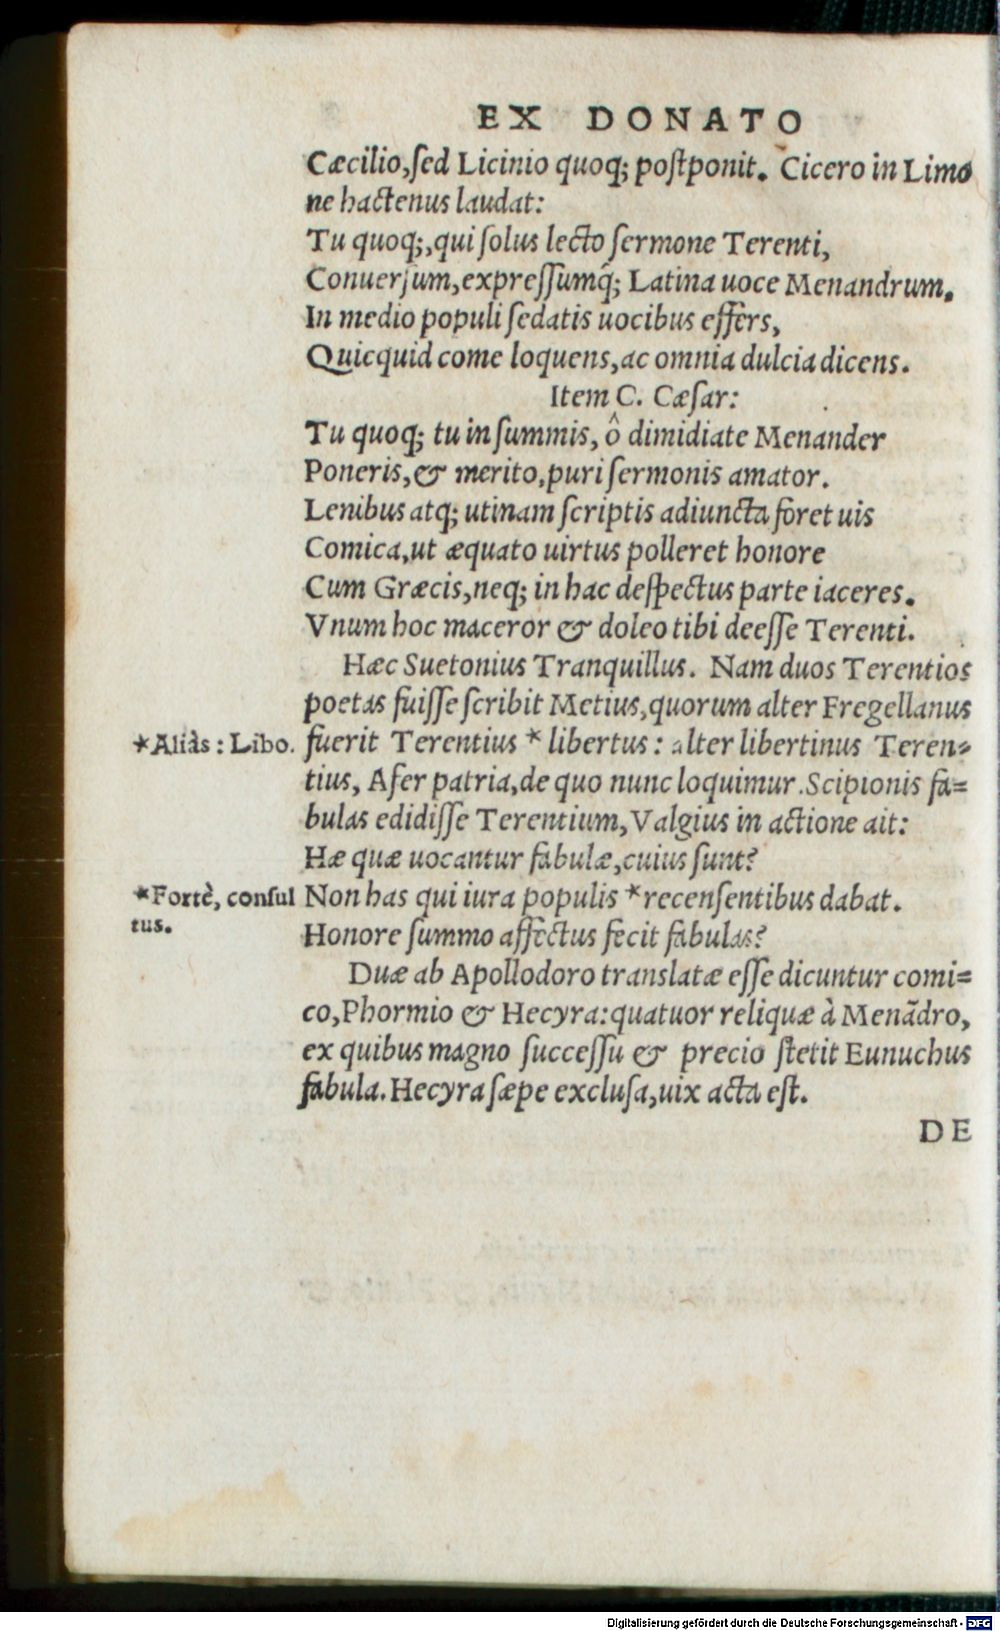 EX DONATO
Cæcilio, ſed Licinio quoq; poſtponit. Cicero in Limo
ne hactenus laudat:
Tu quoq;, qui ſolus lecto ſermone Terenti,
Conuerſum, expreſſumq́; Latina uoce Menandrum,
In medio populi ſedatis uocibus effers,
Quicquid come loquens, ac omnia dulcia dicens.
Item C. Cæſar:
Tu quoq; tu in ſummis, ô dimidiate Menander
Poneris, & merito, puri ſermonis amator.
Lenibus atq; utinam ſcriptis adiuncta foret uis
Comica, ut æquato uirtus polleret honore
Cum Græcis, neq; in hac deſpectus parte iaceres.
Vnum hoc maceror & doleo tibi deeſſe Terenti.
Hæc Suetonius Tranquillus. Nam duos Terentios
poetas fuiſſe ſcribit Metius, quorum alter Fregellanus
*Aliàs: Libo. fuerit Terentius * libertus: alter libertinus Teren=
tius, Afer patria, de quo nunc loquimur. Scipionis fa=
bulas edidiſſe Terentium, Valgius in actione ait:
Hæ quæ uocantur fabulæ, cuius ſunt?
*Fortè, conſul Non has qui iura populis * recenſentibus dabat.
tus.
Honore ſummo affectus fecit fabulas?
Duæ ab Apollodoro translatæ eſſe dicuntur comi=
co, Phormio & Hecyra: quatuor reliquæ à Menãdro,
ex quibus magno ſucceſſu & precio ſtetit Eunuchus
fabula. Hecyra ſæpe excluſa, uix acta eſt.
DE
Digitalisierung gefördert durch die Deutsche Forschungsgemeinschaft - DFG